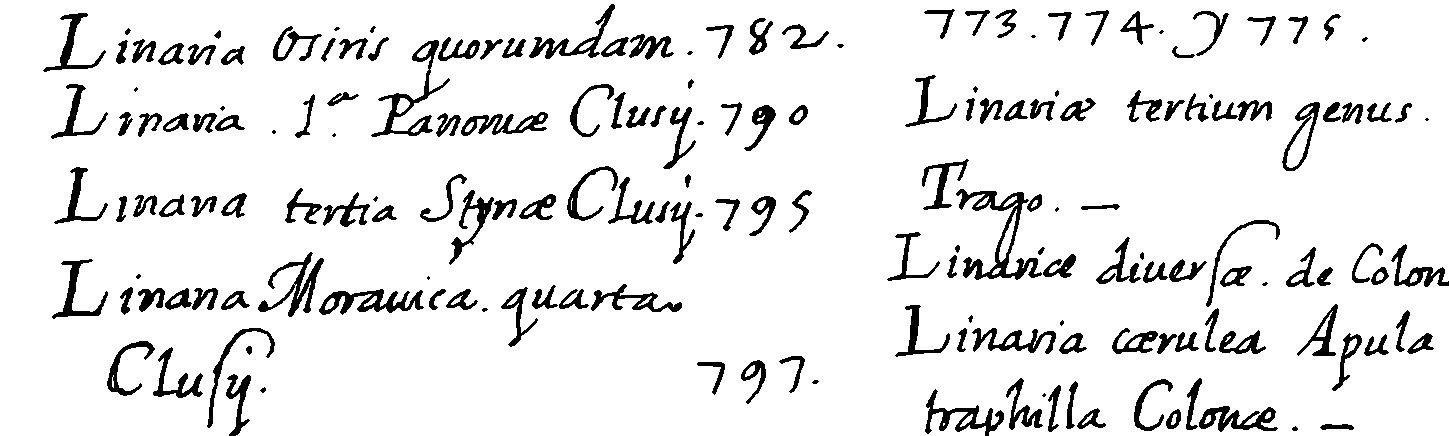 Linaria Osiris quorumdam. 782.
Linaria. 1ª. Panoniæ Clusij. 790
Linaria tertia Styriæ Clusij. 795
Linaria Morauica. quarta
Clusij. 797.
773. 774. y 775.
Linariæ tertium genus.
Trago. —
Linariæ diuersæ. de Colon
Linaria cærulea Apula
traphilla Colonæ. —